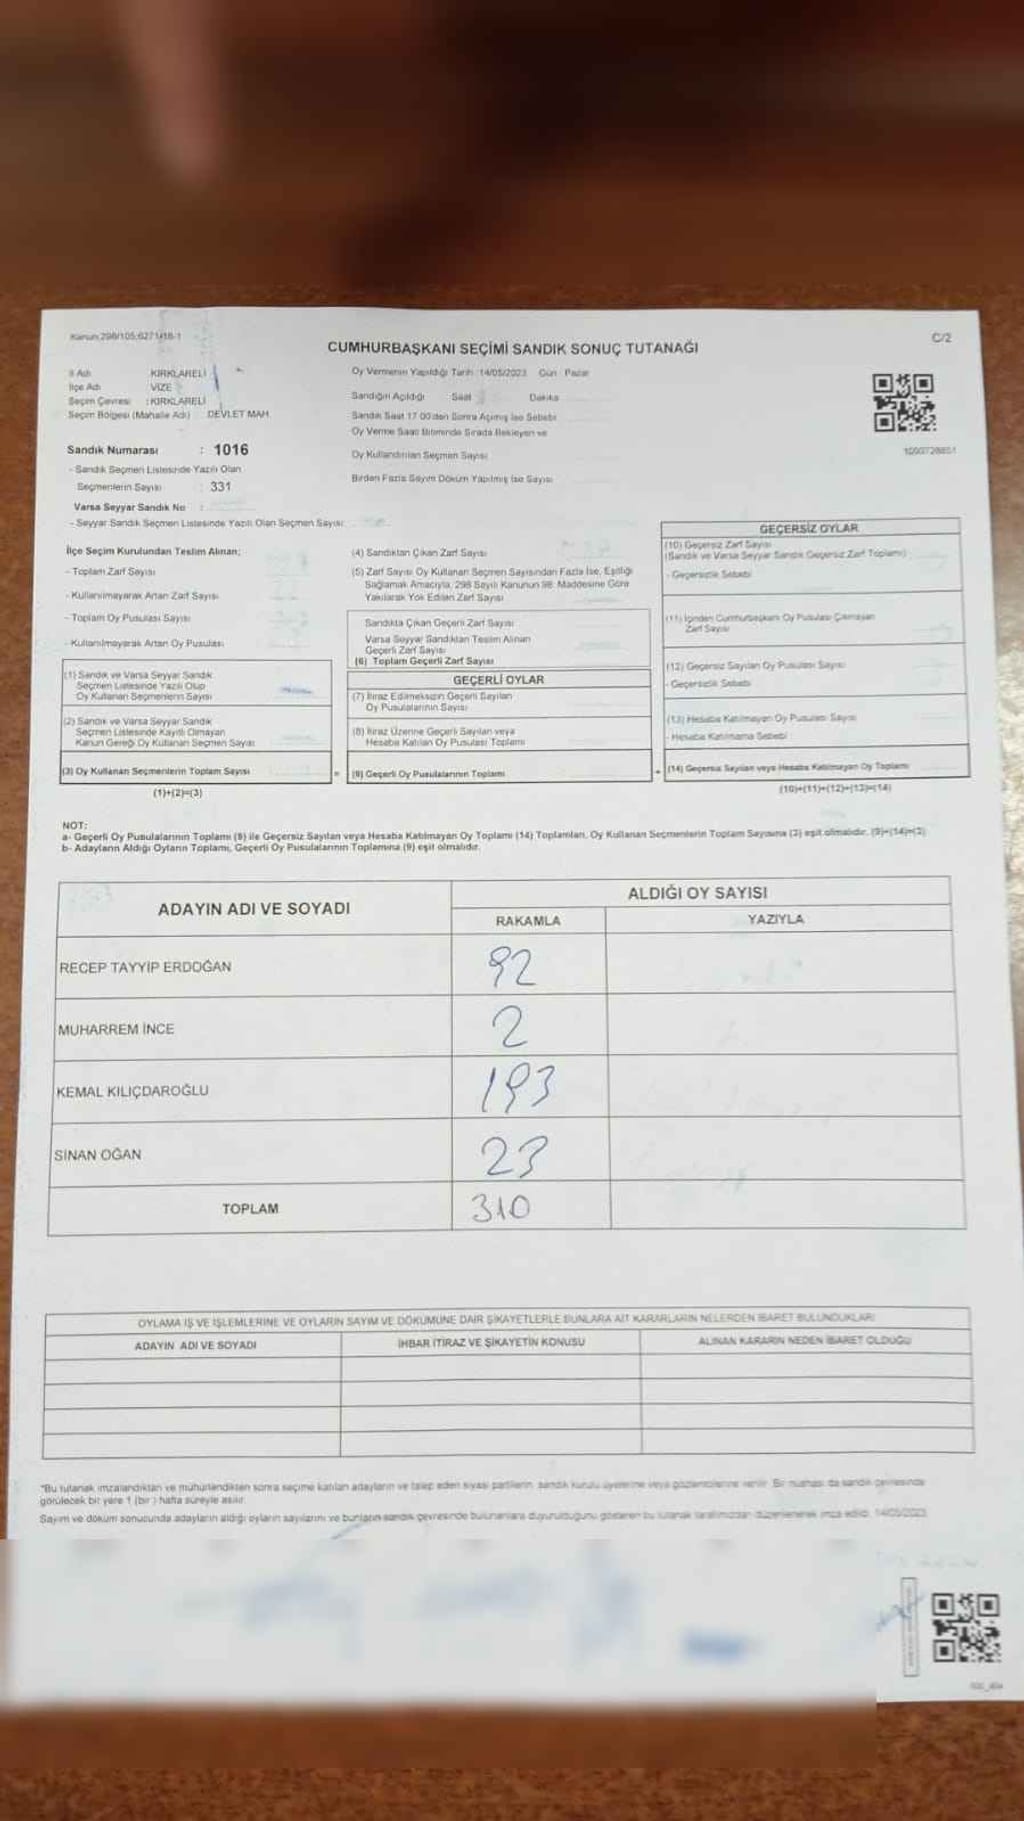 Kanun:298/105;6271/18-1
C/2
CUMHURBAŞKANI SEÇİMİ SANDIK SONUÇ TUTANAĞI
İl Adı : KIRKLARELİ
İlçe Adı : VİZE
Seçim Çevresi : KIRKLARELİ
Seçim Bölgesi (Mahalle Adı) : DEVLET MAH.
Sandık Numarası : 1016
- Sandık Seçmen Listesinde Yazılı Olan
Seçmenlerin Sayısı : 331
Varsa Seyyar Sandık No :
- Seyyar Sandık Seçmen Listesinde Yazılı Olan Seçmen Sayısı:
Oy Vermenin Yapıldığı Tarih :14/05/2023 Gün : Pazar
Sandığın Açıldığı Saat Dakika
Sandık Saat 17.00'den Sonra Açılmış İse Sebebi
Oy Verme Saati Bitiminde Sırada Bekleyen ve
Oy Kullandırılan Seçmen Sayısı
Birden Fazla Sayım Döküm Yapılmış İse Sayısı
1090728651
İlçe Seçim Kurulundan Teslim Alınan;
- Toplam Zarf Sayısı
- Kullanılmayarak Artan Zarf Sayısı
- Toplam Oy Pusulası Sayısı
- Kullanılmayarak Artan Oy Pusulası
(1) Sandık ve Varsa Seyyar Sandık
Seçmen Listesinde Yazılı Olup
Oy Kullanan Seçmenlerin Sayısı
(2) Sandık ve Varsa Seyyar Sandık
Seçmen Listesinde Kayıtlı Olmayan
Kanun Gereği Oy Kullanan Seçmen Sayısı
(3) Oy Kullanan Seçmenlerin Toplam Sayısı
(1)+(2)=(3)
(4) Sandıktan Çıkan Zarf Sayısı
(5) Zarf Sayısı Oy Kullanan Seçmen Sayısından Fazla İse, Eşitliği
Sağlamak Amacıyla, 298 Sayılı Kanunun 98. Maddesine Göre
Yakılarak Yok Edilen Zarf Sayısı
Sandıkta Çıkan Geçerli Zarf Sayısı
Varsa Seyyar Sandıktan Teslim Alınan
Geçerli Zarf Sayısı
(6) Toplam Geçerli Zarf Sayısı
GEÇERLİ OYLAR
(7) İtiraz Edilmeksizin Geçerli Sayılan
Oy Pusulalarının Sayısı
(8) İtiraz Üzerine Geçerli Sayılan veya
Hesaba Katılan Oy Pusulası Toplamı
= (9) Geçerli Oy Pusulalarının Toplamı
GEÇERSİZ OYLAR
(10) Geçersiz Zarf Sayısı
(Sandık ve Varsa Seyyar Sandık Geçersiz Zarf Toplamı)
- Geçersizlik Sebebi
(11) İçinden Cumhurbaşkanı Oy Pusulası Çıkmayan
Zarf Sayısı
(12) Geçersiz Sayılan Oy Pusulası Sayısı
- Geçersizlik Sebebi
(13) Hesaba Katılmayan Oy Pusulası Sayısı
- Hesaba Katılmama Sebebi
+ (14) Geçersiz Sayılan veya Hesaba Katılmayan Oy Toplamı
(10)+(11)+(12)+(13)=(14)
NOT:
a- Geçerli Oy Pusulalarının Toplamı (9) ile Geçersiz Sayılan veya Hesaba Katılmayan Oy Toplamı (14) Toplamları, Oy Kullanan Seçmenlerin Toplam Sayısına (3) eşit olmalıdır. (9)+(14)=(3)
b- Adayların Aldığı Oyların Toplamı, Geçerli Oy Pusulalarının Toplamına (9) eşit olmalıdır.
ADAYIN ADI VE SOYADI ALDIĞI OY SAYISI
RAKAMLA YAZIYLA
RECEP TAYYİP ERDOĞAN 92
MUHARREM İNCE 2
KEMAL KILIÇDAROĞLU 193
SİNAN OĞAN 23
TOPLAM 310
OYLAMA İŞ VE İŞLEMLERİNE VE OYLARIN SAYIM VE DÖKÜMÜNE DAİR ŞİKAYETLERLE BUNLARA AİT KARARLARIN NELERDEN İBARET BULUNDUKLARI
ADAYIN ADI VE SOYADI İHBAR İTİRAZ VE ŞİKAYETİN KONUSU ALINAN KARARIN NEDEN İBARET OLDUĞU
*Bu tutanak imzalandıktan ve mühürlendikten sonra seçime katılan adayların ve talep eden siyasi partilerin, sandık kurulu üyelerine veya gözlemcilerine verilir. Bir nüshası da sandık çevresinde
görülecek bir yere 1 (bir) hafta süreyle asılır.
Sayım ve döküm sonucunda adayların aldığı oyların sayılarını ve bunların sandık çevresinde bulunanlara duyurulduğunu gösteren bu tutanak tarafımızdan düzenlenerek imza edildi. 14/05/2023